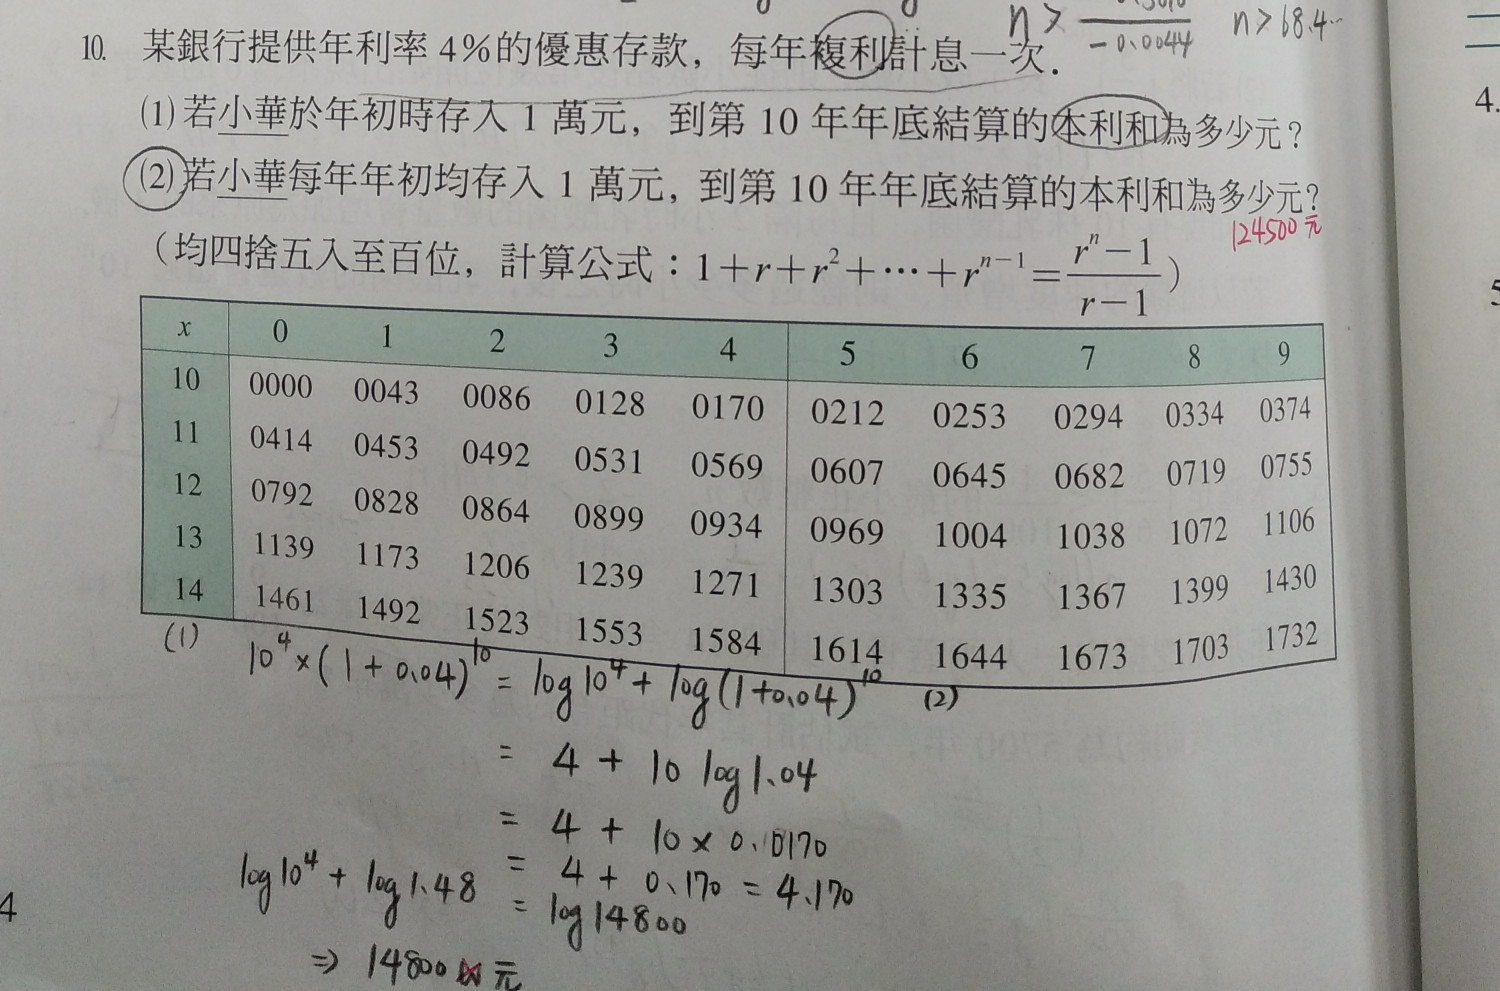 n > 0.3010 / -0.0044 n > 68.4...
10. 某銀行提供年利率 4%的優惠存款，每年複利計息一次．
(1) 若小華於年初時存入 1 萬元，到第 10 年年底結算的本利和為多少元？
(2) 若小華每年年初均存入 1 萬元，到第 10 年年底結算的本利和為多少元？
124500元
（均四捨五入至百位，計算公式：1+r+r²+⋯+rⁿ⁻¹=(rⁿ−1)/(r−1)）
x 0 1 2 3 4 5 6 7 8 9
10 0000 0043 0086 0128 0170 0212 0253 0294 0334 0374
11 0414 0453 0492 0531 0569 0607 0645 0682 0719 0755
12 0792 0828 0864 0899 0934 0969 1004 1038 1072 1106
13 1139 1173 1206 1239 1271 1303 1335 1367 1399 1430
14 1461 1492 1523 1553 1584 1614 1644 1673 1703 1732
(1) 10⁴×(1+0.04)¹⁰ = log10⁴ + log(1+0.04)¹⁰ (2)
= 4 + 10 log1.04
= 4 + 10 × 0.0170
= 4 + 0.170 = 4.170
log10⁴ + log1.48 = log14800
⇒ 14800 元
4.
5
4